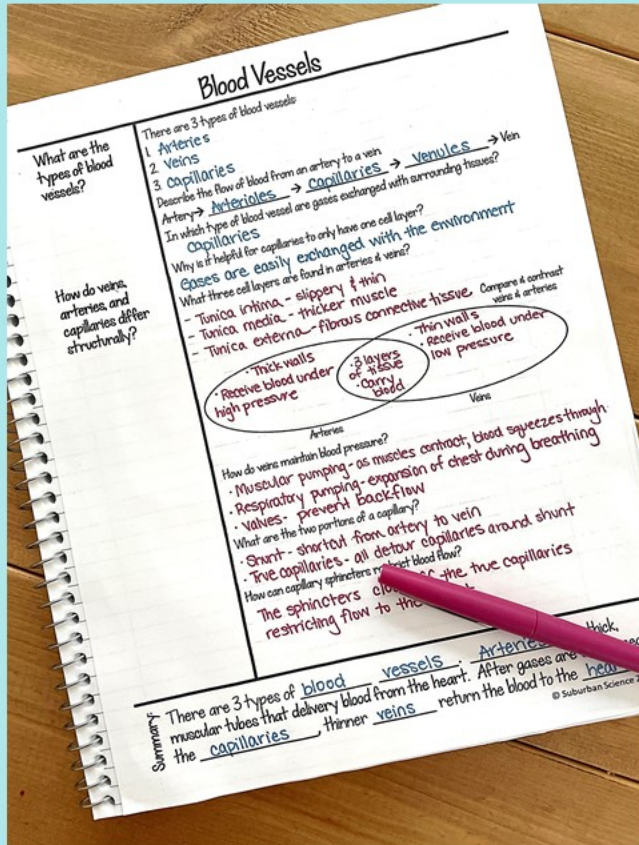 Blood Vessels
What are the
types of blood
vessels?
There are 3 types of blood vessels:
1. Arteries
2. veins
3. capillaries
Describe the flow of blood from an artery to a vein
Artery→ Arterioles → Capillaries → venules → Vein
In which type of blood vessel are gases exchanged with surrounding tissues?
capillaries
Why is it helpful for capillaries to only have one cell layer?
Gases are easily exchanged with the environment
How do veins,
arteries, and
capillaries differ
structurally?
What three cell layers are found in arteries & veins?
- Tunica intima - slippery & thin
- Tunica media - thicker muscle
- Tunica externa - fibrous connective tissue
Compare & contrast
veins & arteries
· Thick walls
· Receive blood under
high pressure
· 3 layers
of tissue
· Carry
blood
· Thin walls
· Receive blood under
low pressure
Arteries
Veins
How do veins maintain blood pressure?
· Muscular pumping - as muscles contract, blood squeezes through
· Respiratory pumping - expansion of chest during breathing
· Valves - prevent backflow
What are the two portions of a capillary?
· Shunt - shortcut from artery to vein
· True capillaries - all detour capillaries around shunt
How can capillary sphincters restrict blood flow?
The sphincters the true capillaries
restricting flow to the
Summary:
There are 3 types of blood vessels. Arteries thick,
muscular tubes that delivery blood from the heart. After gases are
the capillaries, thinner veins return the blood to the
© Suburban Science